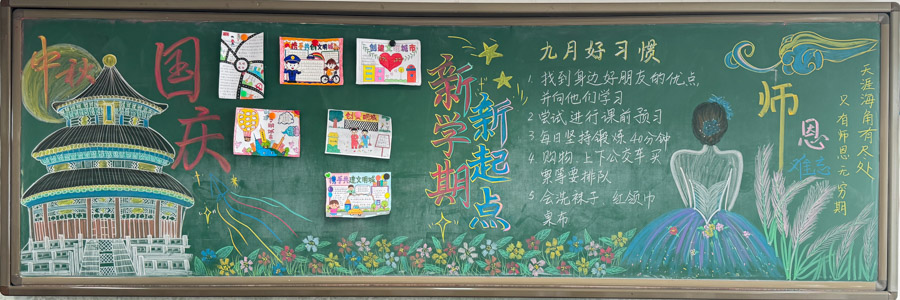 中秋
国庆
携手共创文明城
创建文明城市
新学期
新起点
九月好习惯
1. 找到身边好朋友的优点,
并向他们学习
2 尝试进行课前预习
3 每日坚持锻炼40分钟
4 购物、上下公交车、买
单等要排队
5 会洗袜子、红领巾
桌布
师恩难忘
天涯海角有尽处
只有师恩无穷期